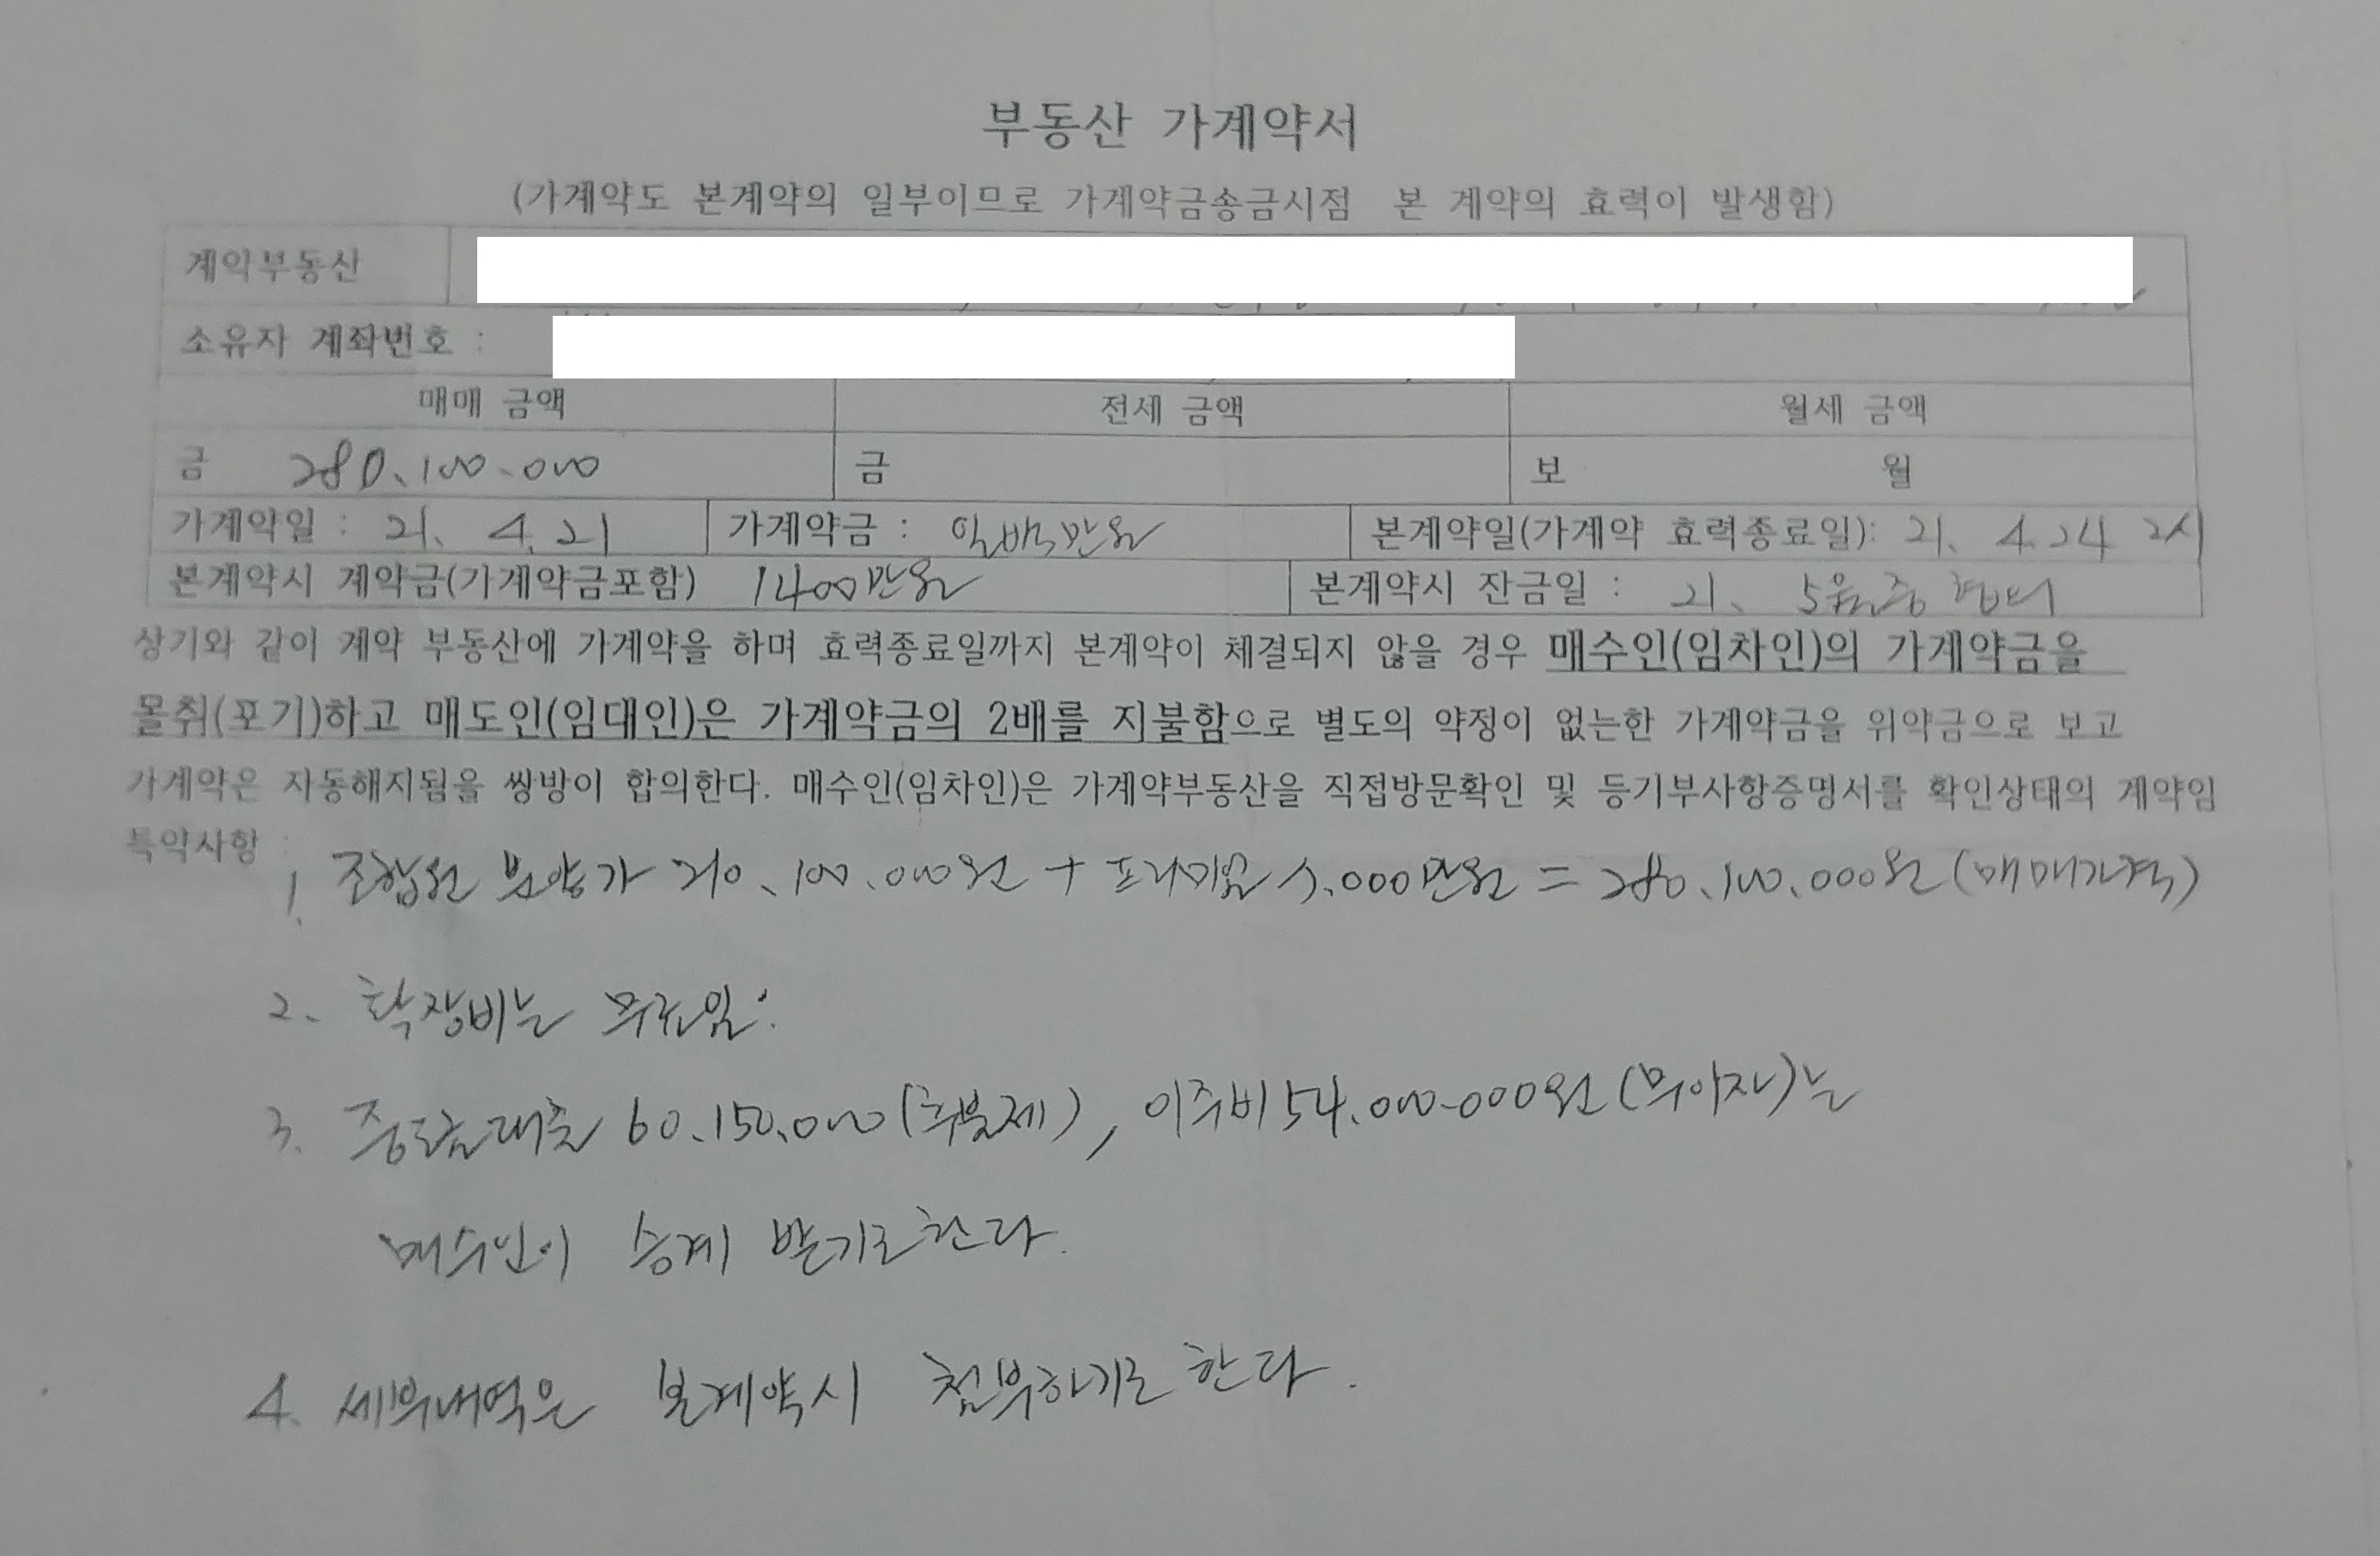 부동산 가계약서
(가계약도 본계약의 일부이므로 가계약금송금시점 본 계약의 효력이 발생함)
계약부동산
소유자 계좌번호 :
매매 금액 전세 금액 월세 금액
금 280.100.000 금 보 월
가계약일 : 21. 4. 21 가계약금 : 일백만원 본계약일(가계약 효력종료일): 21. 4.24 2시
본계약시 계약금(가계약금포함) 1400만원 본계약시 잔금일 : 21. 5월중 협의
상기와 같이 계약 부동산에 가계약을 하며 효력종료일까지 본계약이 체결되지 않을 경우 매수인(임차인)의 가계약금을
몰취(포기)하고 매도인(임대인)은 가계약금의 2배를 지불함으로 별도의 약정이 없는한 가계약금을 위약금으로 보고
가계약은 자동해지됨을 쌍방이 합의한다. 매수인(임차인)은 가계약부동산을 직접방문확인 및 등기부사항증명서를 확인상태의 계약임
특약사항 :
1. 조합원 분양가 210.100.000원 + 프리미엄 7.000만원 = 280.100.000원 (매매가격)
2. 확장비는 무료임.
3. 중도금대출 60.150.000 (후불제), 이주비 54.000.000원 (무이자)는
매수인이 승계 받기로 한다.
4. 세부내역은 본계약시 첨부하기로 한다.